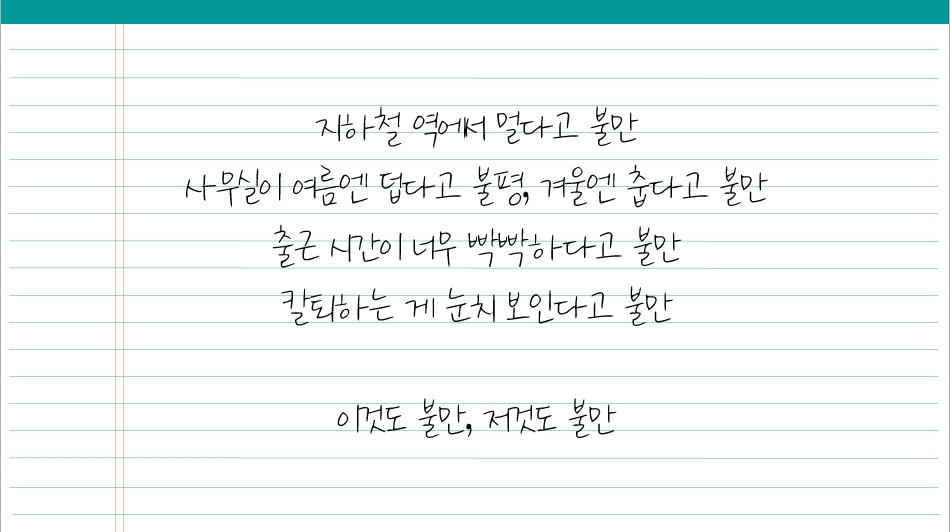 지하철 역에서 멀다고 불만
사무실이 여름엔 덥다고 불평, 겨울엔 춥다고 불만
출근 시간이 너무 빡빡하다고 불만
칼퇴하는 게 눈치 보인다고 불만
이것도 불만, 저것도 불만